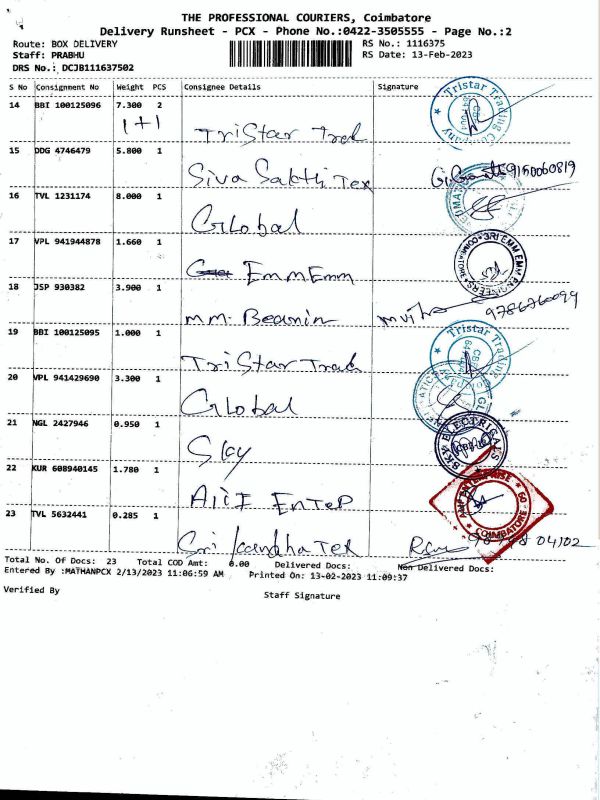 THE PROFESSIONAL COURIERS, Coimbatore
Delivery Runsheet - PCX - Phone No.:0422-3505555 - Page No.:2
Route: BOX DELIVERY RS No.: 1116375
Staff: PRABHU RS Date: 13-Feb-2023
DRS No.: DCJB111637502
S No Consignment No Weight PCS Consignee Details Signature
14 BBI 100125096 7.300 2
1+1 TriStar Trad
Tristar Trading Company
15 DDG 4746479 5.800 1
Siva Sakthi Tex 9150060819
16 TVL 1231174 8.000 1
Global
17 VPL 941944878 1.660 1
EmmEmm
SRI EMM EMM ENGINEERS
18 JSP 930382 3.900 1
mm. Bearnin 9786760099
19 BBI 100125095 1.000 1
TriStar Trad
Tristar Trading
20 VPL 941429690 3.300 1
Global
21 NGL 2427946 0.950 1
Sky
SKY ELECTRICALS
22 KUR 608940145 1.780 1
Enter
ENTERPRISE
COIMBATORE
23 TVL 5632441 0.285 1
Sri Tex 04102
Total No. Of Docs: 23 Total COD Amt: 0.00 Delivered Docs: Non Delivered Docs:
Entered By :MATHANPCX 2/13/2023 11:06:59 AM Printed On: 13-02-2023 11:09:37
Verified By Staff Signature